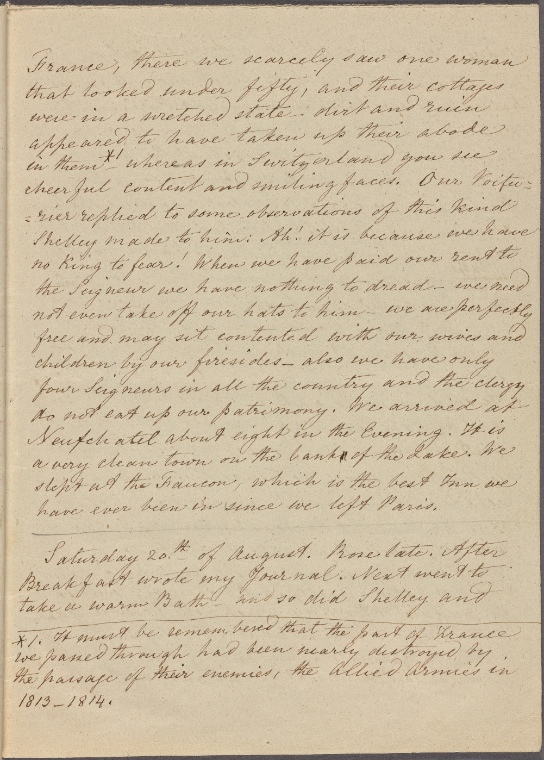 France, there we scarcely saw one woman
that looked under fifty, and their cottages
were in a wretched state - dirt and ruin
appeared to have taken up their abode
in them *1 - whereas in Switzerland you see
cheerful content and smiling faces. Our Voitu=
=rier replied to some observations of this kind
Shelley made to him: Ah! it is because we have
no King to fear! When we have paid our rent to
the Seigneur we have nothing to dread - we need
not even take off our hats to him - we are perfectly
free and may sit contented with our wives and
children by our firesides - also we have only
four Seigneurs in all the country and the clergy
do not eat up our patrimony. We arrived at
Neufchatel about eight in the Evening. It is
a very clean town on the bank of the Lake. We
slept at the Faucon, which is the best Inn we
have ever been in since we left Paris.
Saturday 20th of August. Rose late. After
Breakfast wrote my Journal. Next went to
take a warm Bath - and so did Shelley and
*1. It must be remembered that the part of France
we passed through had been nearly destroyed by
the passage of their enemies, the Allied Armies in
1813 - 1814.